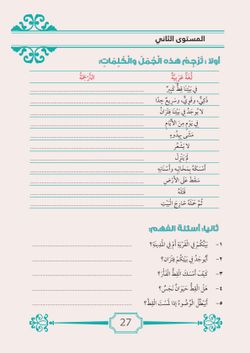 المستوى الثاني
أولا : تَرْجِمْ هذِهِ الْجُمَلَ وَالْكَلِمَاتِ:
لُغَةٌ عَرَبِيَّةٌ
التَّرْجَمَةُ
فِي بَيْتِنَا قِطٌّ كَبِيرٌ
ذَكِيٌّ، وَقَوِيٌّ، وَسَرِيعٌ جِدًّا
لَا يُوجَدُ فِي بَيْتِنَا فِئْرَانٌ
فِي يَوْمٍ مِنَ الْأَيَّامِ
مَشَى بِهُدُوءٍ
لَا يَشْعُرُ
لَمْ يَنْزِلْ
أَمْسَكَهُ بِمَخَالِبِهِ وَأَسْنَانِهِ
سَقَطَ عَلَى الْأَرْضِ
قَتَلَهُ
ثُمَّ حَمَلَهُ خَارِجَ الْبَيْتِ
ثانيا: أسئلة الفهم:
١- بَيْتُكُمْ فِي الْقَرْيَةِ أَمْ فِي الْمَدِينَةِ؟
٢- أَيُوجَدُ فِي بَيْتِكُمْ فِئْرَانٌ؟
٣- كَيْفَ أَمْسَكَ الْقِطُّ الْفَأْرَ؟
٤- هَلِ الْقِطُّ حَيَوَانٌ نَجِسٌ؟
٥- أَيَبْطُلُ الْوُضُوءُ إِذَا لَمَسْتَ الْقِطَّ؟
27